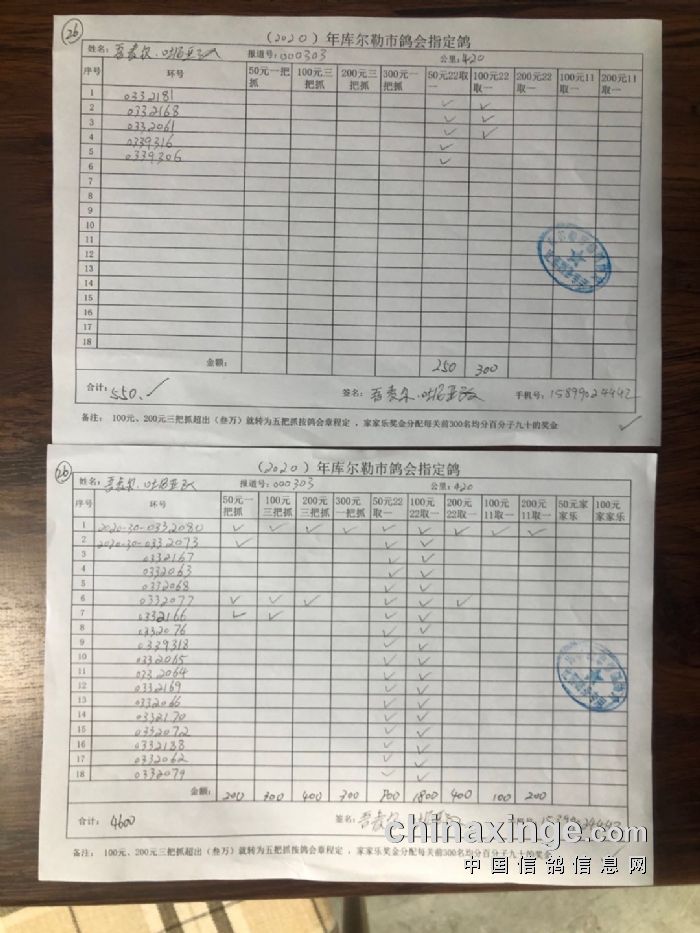 26
（2020）年库尔勒市鸽会指定鸽
姓名： 报道号：000303 公里：420
序号 环号 50元一把抓 100元三把抓 200元三把抓 300元一把抓 50元22取一 100元22取一 200元22取一 100元11取一 200元11取一
1 0332181 ✓ ✓
2 0332168 ✓ ✓
3 0332061 ✓ ✓
4 0339316 ✓
5 0339306 ✓
6
7
8
9
10
11
12
13
14
15
16
17
18
金额： 250 300
合计：550. ✓ 签名： 手机号：15899024442
备注： 100元、200元三把抓超出（叁万）就转为五把抓按鸽会章程定，家家乐奖金分配每关前300名均分百分子九十的奖金
26
（2020）年库尔勒市鸽会指定鸽
姓名： 报道号：000303 公里：420
序号 环号 50元一把抓 100元三把抓 200元三把抓 300元一把抓 50元22取一 100元22取一 200元22取一 100元11取一 200元11取一 50元家家乐 100元家家乐
1 2020-30-0332080 ✓ ✓ ✓ ✓ ✓ ✓ ✓ ✓ ✓
2 2020-30-0332073 ✓ ✓ ✓
3 0332167 ✓ ✓
4 0332063 ✓ ✓
5 0332068 ✓ ✓
6 0332077 ✓ ✓ ✓ ✓ ✓ ✓
7 0332166 ✓ ✓ ✓ ✓
8 0332076 ✓ ✓
9 0339318 ✓ ✓
10 0332065 ✓ ✓
11 0332064 ✓ ✓
12 0332169 ✓ ✓
13 0332066 ✓ ✓
14 0332170 ✓ ✓
15 0332072 ✓ ✓
16 0332188 ✓ ✓
17 0332062 ✓ ✓
18 0332079 ✓ ✓
金额： 200 300 400 300 900 1800 400 100 200
合计： 4600 签名：
备注： 100元、200元三把抓超出（叁万）就转为五把抓按鸽会章程定，家家乐奖金分配每关前300名均分百分子九十的奖金
chinaxinge.com
中国信鸽信息网